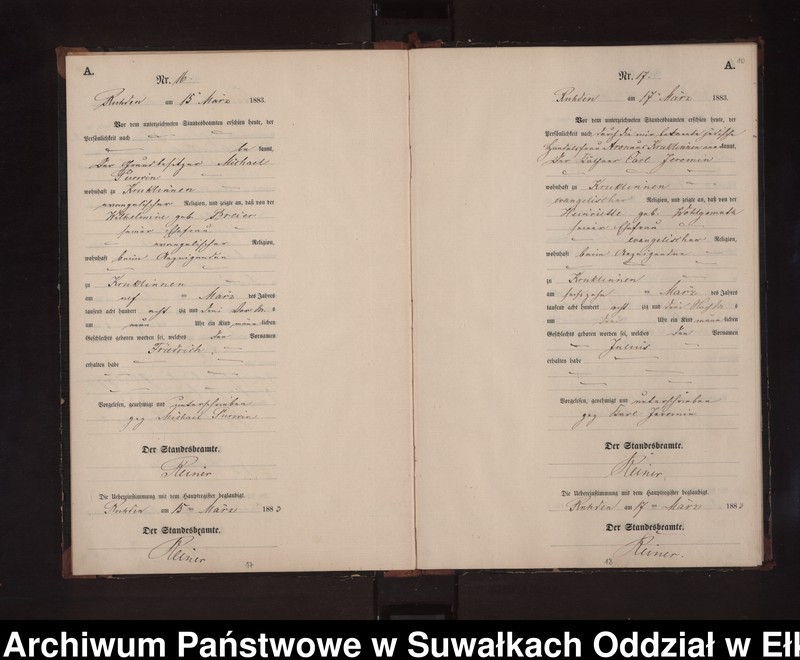 A.
Nr. 16.
Ruhden am 15 März 1883.
Vor dem unterzeichneten Standesbeamten erschien heute, der
Persönlichkeit nach
be kannt,
Der Grundbesitzer Michael
wohnhaft zu Kruklinnen
evangelischer Religion, und zeigte an, daß von der
Wilhelmine geb.
seiner Ehefrau
evangelischer Religion,
wohnhaft beim
zu Kruklinnen
am elf ten März des Jahres
tausend acht hundert acht zig und drei
um neun Uhr ein Kind männ lichen
Geschlechts geboren worden sei, welches den Vornamen
Friedrich
erhalten habe
Vorgelesen, genehmigt und unterschrieben
gez Michael
Der Standesbeamte.
Reiner
Die Uebereinstimmung mit dem Hauptregister beglaubigt.
Ruhden am 15 ten März 1883
Der Standesbeamte.
Reiner
17
A.
Nr. 17.
Ruhden am 17 März 1883.
Vor dem unterzeichneten Standesbeamten erschien heute, der
Persönlichkeit nach durch die mir bekannte
kannt,
Der Käthner Carl Jeromin
wohnhaft zu Kruklinnen
evangelischer Religion, und zeigte an, daß von der
Henriette geb. Wohlgemuth
seiner Ehefrau
evangelischer Religion,
wohnhaft beim
zu Kruklinnen
am sechszehn ten März des Jahres
tausend acht hundert acht zig und drei
um Uhr ein Kind männ lichen
Geschlechts geboren worden sei, welches den Vornamen
Julius
erhalten habe
Vorgelesen, genehmigt und unterschrieben
gez Karl Jeromin
Der Standesbeamte.
Reiner.
Die Uebereinstimmung mit dem Hauptregister beglaubigt.
Ruhden am 17 ten März 1883
Der Standesbeamte.
Reiner.
Archiwum Państwowe w Suwałkach Oddział w Ełk